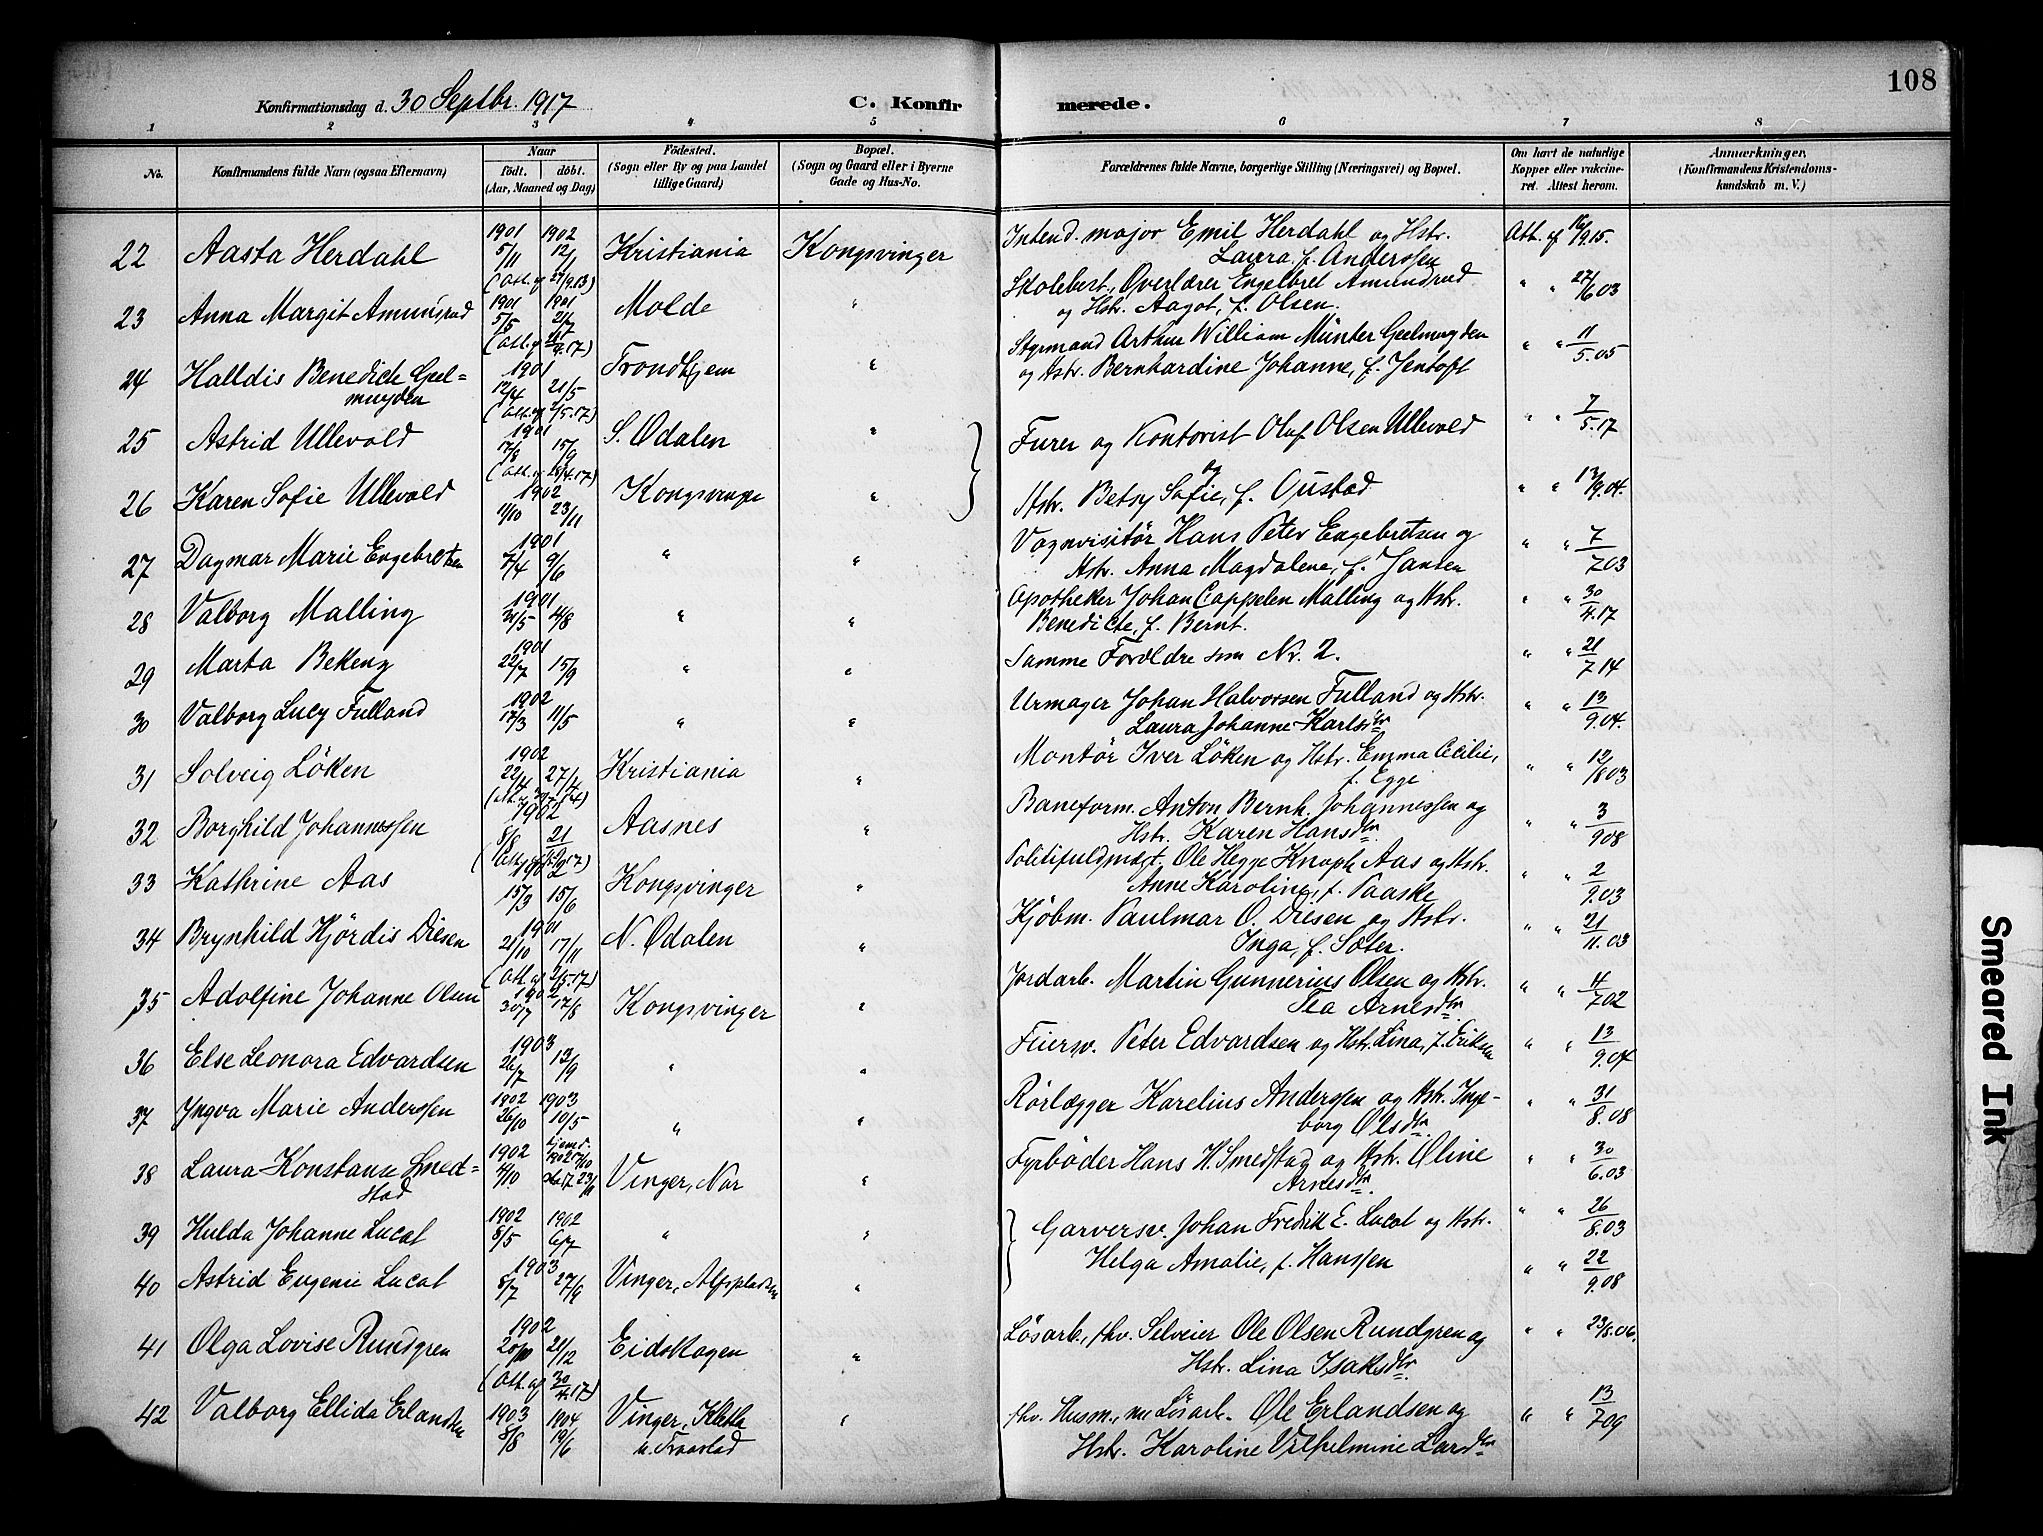 108
Konfirmationsdag d. 30 Septbr. 1917 C. Konfirmerede.
1 2 3 4 5 6 7 8
No. Konfirmandens fulde Navn (ogsaa Efternavn) Naar født. døbt. (Aar, Maaned og Dag) Fødested. (Sogn eller By og paa Landet tillige Gaard) Bopæl. (Sogn og Gaard eller i Byerne Gade og Hus-No. Forældrenes fulde Navne, borgerlige Stilling (Næringsvei) og Bopæl. Om havt de naturlige Kopper eller vakcineret. Attest herom. Anmærkninger, (Konfirmandens Kristendomskundskab m. V.)
22 Aasta Herdahl 1901 5/11 1902 12/1 Kristiania Kongsvinger Intend. major Emil Herdahl og Hstr. Att. af 16/9 15.
(Att. af 27/9.13) Laura, f. Anderssen
23 Anna Margit Amundsrud 1901 5/5 1901 2/6 Molde " Skolebest., Overlærer Engelbret Amundrud " " 27/6 03
og Hstr. Aagot, f. Olsen.
24 Halldis Benedicte Geelmuyden 1901 12/4 21/5 Trondhjem " Styrmand Arthur William Münter Geelmuyden " " 11/5.05
(Att. af 2/5.17) og Hstr. Bernhardine Johanne, f. Jentoft
25 Astrid Ullevold 1901 17/8 15/9 S. Odalen " Furer og Kontorist Oluf Olsen Ullevold " " 7/5.17
(Att. af 28/4.17) og
26 Karen Sofie Ullevold 1902 1/10 23/11 Kongsvinger " Hstr. Betsy Sofie, f. Opstad " " 13/9.04.
27 Dagmar Marie Engebretsen 1901 7/4 9/6 " " Vognvisitør Hans Peter Engebretsen og " " 7/7 03
Hstr. Anna Magdalene, f. Jansen
28 Valborg Malling 1901 31/5 4/8 " " Apotheker Johan Cappelen Malling og Hstr. " " 30/4.17
Benedicte, f. Bernt.
29 Marta Bekeng 1901 22/7 15/9 " " Samme Forældre som Nr. 2. " " 21/7 14
30 Valborg Lucy Fulland 1902 17/3 11/5 " " Urmager Johan Halvorsen Fulland og Hstr. " " 13/9.04.
Laura Johanne Karlsdtr
31 Solveig Löken 1902 22/4 27/7 Kristiania " Montör Iver Löken og Hstr. Emma Cecilie, " " 12/8 03
f. Egge
32 Borghild Johannessen 1902 8/8 21/9 Aasnes " Baneform. Anton Bernh. Johannessen og " " 3/9 08
Hstr. Karen Hansdtr
33 Kathrine Aas 1902 15/3 15/6 Kongsvinger " Politifuldmægt. Ole Hegge Knoph Aas og Hstr. " " 2/9.03
Anne Karoline, f. Paaske
34 Brynhild Hjördis Diesen 1901 21/10 17/11 N. Odalen " Kjöbm. Paulmar O. Diesen og Hstr. " " 21/11.03
(Att. af 2/5.17) Inga, f. Sæter.
35 Adolfine Johanne Olsen 1902 30/7 17/8 Kongsvinger " Jordarb. Martin Gunnerius Olsen og Hstr. " " 4/7 02
Tea Arnesdtr
36 Else Leonora Edvardsen 1903 26/7 13/9 " " Feiersv. Peter Edvardsen og Hstr. Lina, f. Eriksen " " 13/9.04
37 Yngva Marie Anderssen 1902 26/10 1903 10/5 " " Rörlægger Karelius Anderssen og Hstr. Ingeborg Olsdtr " " 31/8.08
38 Laura Konstanse Smedstad 1902 4/10 hjemd. 1902 Vinger, Nor " Fyrböder Hans H. Smedstad og Hstr. Oline " " 30/6.03
Arnesdtr.
39 Hulda Johanne Lucat 1902 8/5 1902 6/7 " " Garversv. Johan Fredrik E. Lucat og Hstr. " " 26/8.03
40 Astrid Eugenie Lucat 1903 8/7 27/9 Vinger, Alfspladsen " Helga Amalie, f. Hanssen " " 22/9.08
41 Olga Lovise Rundgren 1902 20/10 21/12 Eidskogen " Lösarb., fhv. Selveier Ole Olsen Rundgren og " " 23/8.06.
(Att. af 30/4.17) Hstr. Lina Isaksdtr.
42 Valborg Ellida Erlandsen 1903 8/8 1904 19/6 Vinger, " fhv. Husm., nu Lösarb. Ole Erlandsen og " " 13/7 09
Hstr. Karoline Vilhelmine Larsdtr
Smeared Ink